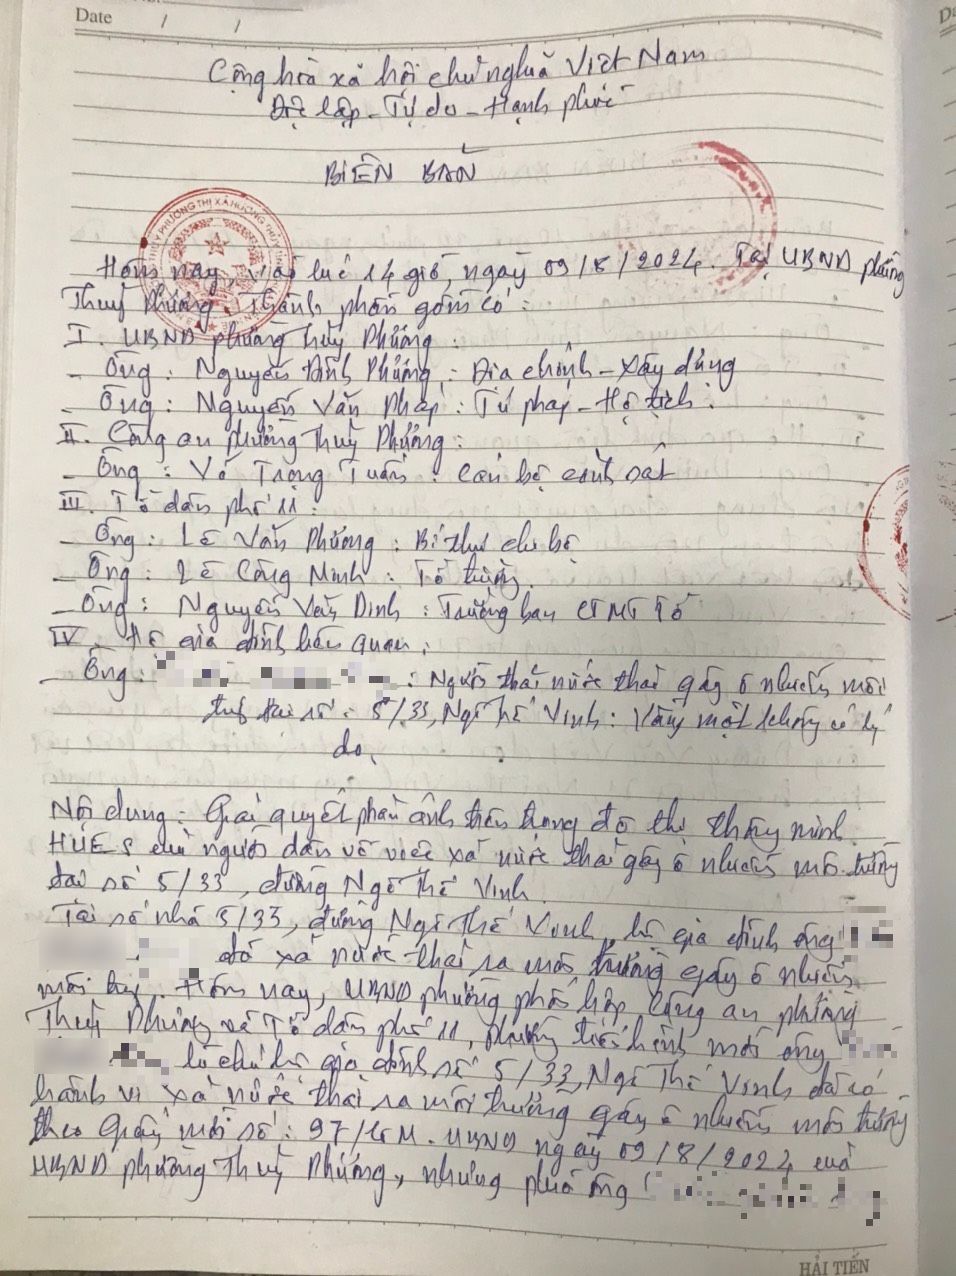 Date / /
Cộng hoà xã hội chủ nghĩa Việt Nam
Độc lập - Tự do - Hạnh phúc
BIÊN BẢN
Hôm nay, vào lúc 14 giờ, ngày 09/8/2024. Tại UBND phường
Thuỷ Phương. Thành phần gồm có:
I. UBND phường Thuỷ Phương:
- Ông: Nguyễn Đình Phương: Địa chính - Xây dựng
- Ông: Nguyễn Văn Pháp: Tư pháp - Hộ tịch.
II. Công an phường Thuỷ Phương:
- Ông: Võ Trọng Tuấn: Cán bộ cảnh sát
III. Tổ dân phố 11:
- Ông: Lê Văn Phương: Bí thư chi bộ
- Ông: Lê Công Minh: Tổ trưởng.
- Ông: Nguyễn Văn Dinh: Trưởng ban CTMT Tổ
IV. Hộ gia đình liên quan:
- Ông: : Người thải nước thải gây ô nhiễm môi
trường tại số: 5/33, Ngô Thế Vinh: Vắng mặt không có lý
do.
Nội dung: Giải quyết phản ánh trên trang đô thị thông minh
HUES của người dân về việc xả nước thải gây ô nhiễm môi trường
tại số 5/33, đường Ngô Thế Vinh.
Tại số nhà 5/33, đường Ngô Thế Vinh, hộ gia đình ông
đã xả nước thải ra môi trường gây ô nhiễm
môi trường. Hôm nay, UBND phường phối hợp Công an phường
Thuỷ Phương và Tổ dân phố 11, phường tiến hành mời ông
là chủ hộ gia đình số 5/33, Ngô Thế Vinh đã có
hành vi xả nước thải ra môi trường gây ô nhiễm môi trường
theo Giấy mời số: 97/GM-UBND ngày 09/8/2024 của
UBND phường Thuỷ Phương, nhưng phía ông
HẢI TIẾN